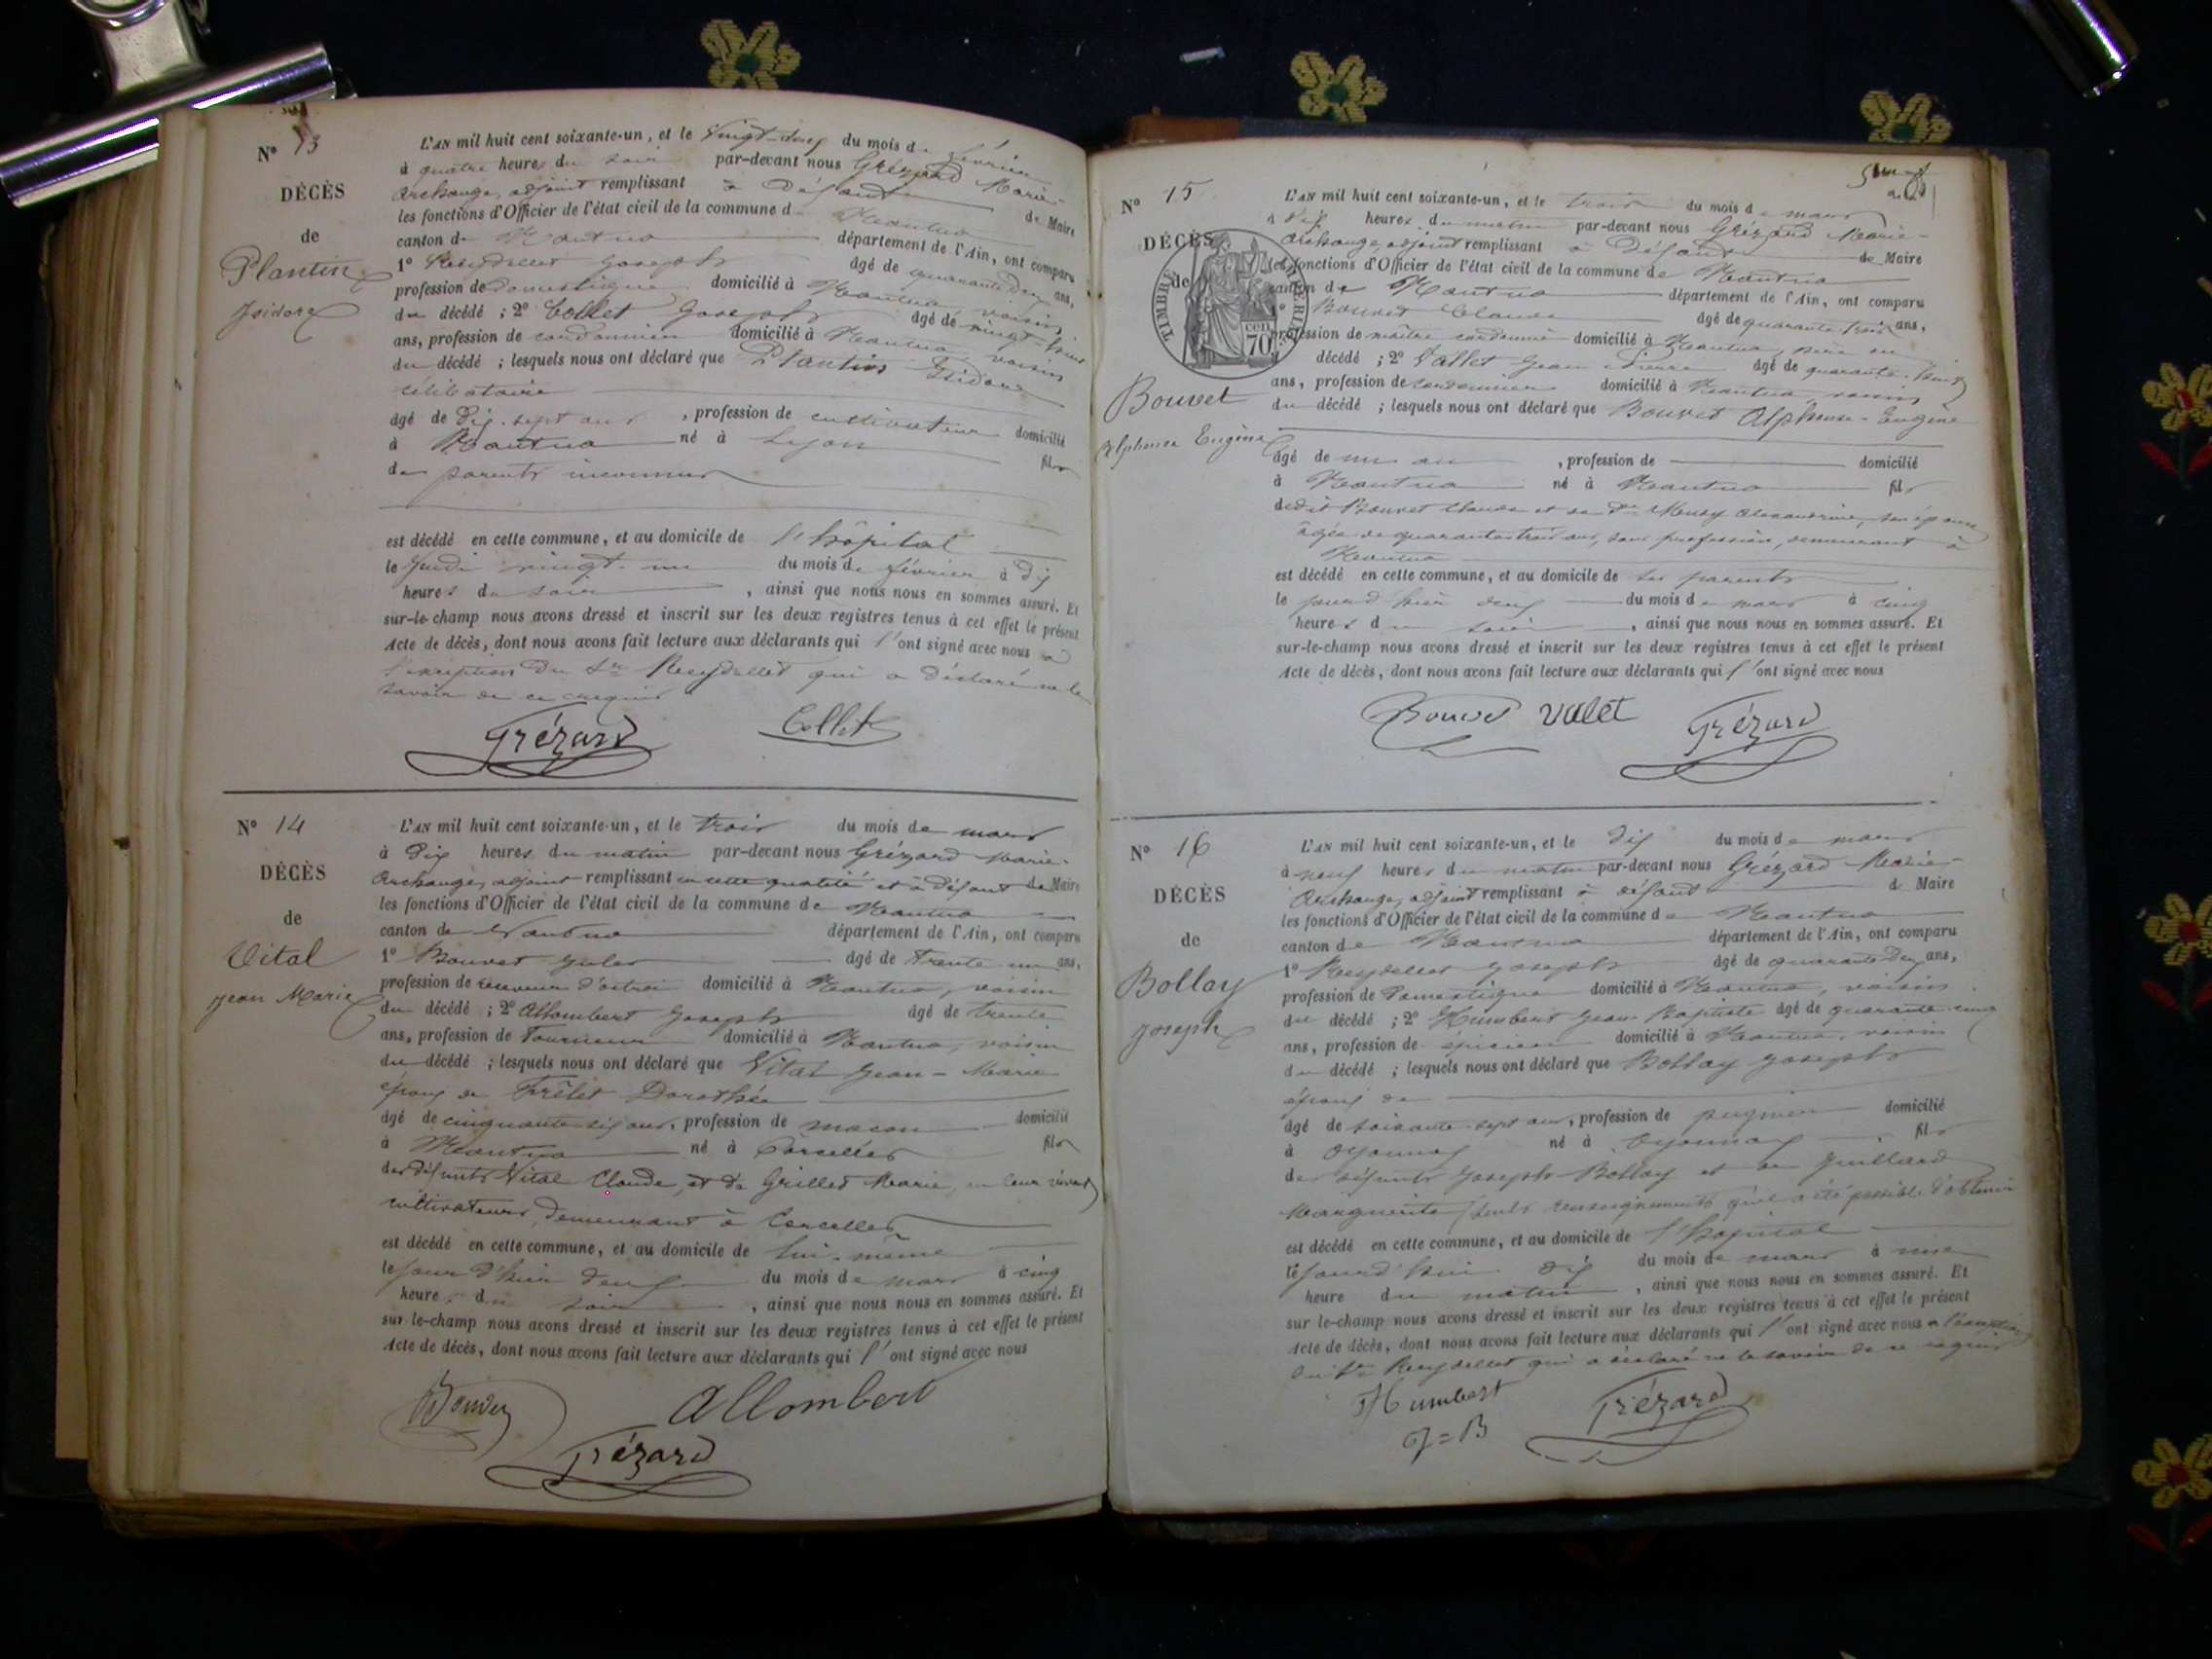 N° 13
DÉCÈS
de
Plantin
Isidore
L'AN mil huit cent soixante-un, et le vingt-deux du mois de février
à quatre heures du soir par-devant nous Grézard Marie-
Archange, adjoint remplissant à défaut de Maire
les fonctions d'Officier de l'état civil de la commune de Nantua
canton de Nantua département de l'Ain, ont comparu
1° Reydellet Joseph âgé de quarante deux ans,
profession de domestique domicilié à Nantua voisin
du décédé ; 2° Collet Joseph âgé de vingt-
ans, profession de cordonnier domicilié à Nantua, voisin
du décédé ; lesquels nous ont déclaré que Plantin Isidore
célibataire
âgé de dix-sept ans, profession de cultivateur domicilié
à Nantua né à Lyon fils
de parents inconnus
est décédé en cette commune, et au domicile de l'hôpital
le jeudi vingt-un du mois de février à dix
heures du soir, ainsi que nous nous en sommes assuré. Et
sur-le-champ nous avons dressé et inscrit sur les deux registres tenus à cet effet le présent
Acte de décès, dont nous avons fait lecture aux déclarants qui l'ont signé avec nous à
l'exception du Sr Reydellet qui a déclaré ne le
savoir de ce requis
Grézard Collet
N° 14
DÉCÈS
de
Vital
Jean Marie
L'AN mil huit cent soixante-un, et le trois du mois de mars
à dix heures du matin par-devant nous Grézard Marie-
Archange, adjoint remplissant en cette qualité et à défaut de Maire
les fonctions d'Officier de l'état civil de la commune de Nantua
canton de Nantua département de l'Ain, ont comparu
1° Bouvet Jules âgé de trente un ans,
profession de receveur d'octroi domicilié à Nantua, voisin
du décédé ; 2° Allombert Joseph âgé de trente
ans, profession de Tourneur domicilié à Nantua, voisin
du décédé ; lesquels nous ont déclaré que Vital Jean-Marie
époux de Frêlet Dorothée
âgé de cinquante-six ans, profession de macon domicilié
à Nantua né à Corcelles fils
des défunts Vital Claude, et de Grillet Marie, en leur vivant
cultivateurs, demeurant à Corcelles
est décédé en cette commune, et au domicile de lui-même
le jour d'hier deux du mois de mars à cinq
heures du soir, ainsi que nous nous en sommes assuré. Et
sur-le-champ nous avons dressé et inscrit sur les deux registres tenus à cet effet le présent
Acte de décès, dont nous avons fait lecture aux déclarants qui l'ont signé avec nous
Bouvet Allombert
Grézard
N° 15
DÉCÈS
de
TIMBRE IMPÉRIAL
70 cen
Bouvet
Alphonse Eugène
L'AN mil huit cent soixante-un, et le trois du mois de mars
à dix heures du matin par-devant nous Grézard Marie-
Archange, adjoint remplissant à défaut de Maire
les fonctions d'Officier de l'état civil de la commune de Nantua
canton de Nantua département de l'Ain, ont comparu
1° Bouvet Claude âgé de quarante trois ans,
profession de maître cordonnier domicilié à Nantua, père du
décédé ; 2° Vallet Jean Pierre âgé de quarante-huit
ans, profession de cordonnier domicilié à Nantua, voisin
du décédé ; lesquels nous ont déclaré que Bouvet Alphonse-Eugène
âgé de un an, profession de domicilié
à Nantua né à Nantua fils
dudit Bouvet Claude et de De Alexandrine, son épouse
âgée de quarante trois ans, sans profession, demeurant à
Nantua
est décédé en cette commune, et au domicile de ses parents
le jour d'hier deux du mois de mars à cinq
heures du soir, ainsi que nous nous en sommes assuré. Et
sur-le-champ nous avons dressé et inscrit sur les deux registres tenus à cet effet le présent
Acte de décès, dont nous avons fait lecture aux déclarants qui l'ont signé avec nous
Bouvet Valet Grézard
N° 16
DÉCÈS
de
Bollay
Joseph
L'AN mil huit cent soixante-un, et le dix du mois de mars
à neuf heures du matin par-devant nous Grézard Marie-
Archange, adjoint remplissant à défaut de Maire
les fonctions d'Officier de l'état civil de la commune de Nantua
canton de Nantua département de l'Ain, ont comparu
1° Reydellet Joseph âgé de quarante deux ans,
profession de Domestique domicilié à Nantua, voisin
du décédé ; 2° Humbert Jean Baptiste âgé de quarante cinq
ans, profession de épicier domicilié à Nantua, voisin
du décédé ; lesquels nous ont déclaré que Bollay Joseph
époux de
âgé de soixante-sept ans, profession de peignier domicilié
à Oyonnax né à Oyonnax, fils
des défunts Joseph Bollay et de Juillard
Marguerite (seuls renseignements qu'il a été possible d'obtenir
est décédé en cette commune, et au domicile de l'hopital
le jourd'hui dix du mois de mars à une
heure du matin, ainsi que nous nous en sommes assuré. Et
sur-le-champ nous avons dressé et inscrit sur les deux registres tenus à cet effet le présent
Acte de décès, dont nous avons fait lecture aux déclarants qui l'ont signé avec nous à l'exception
du Sr Reydellet qui a déclaré ne le savoir de ce requis
Humbert Grézard
J=B